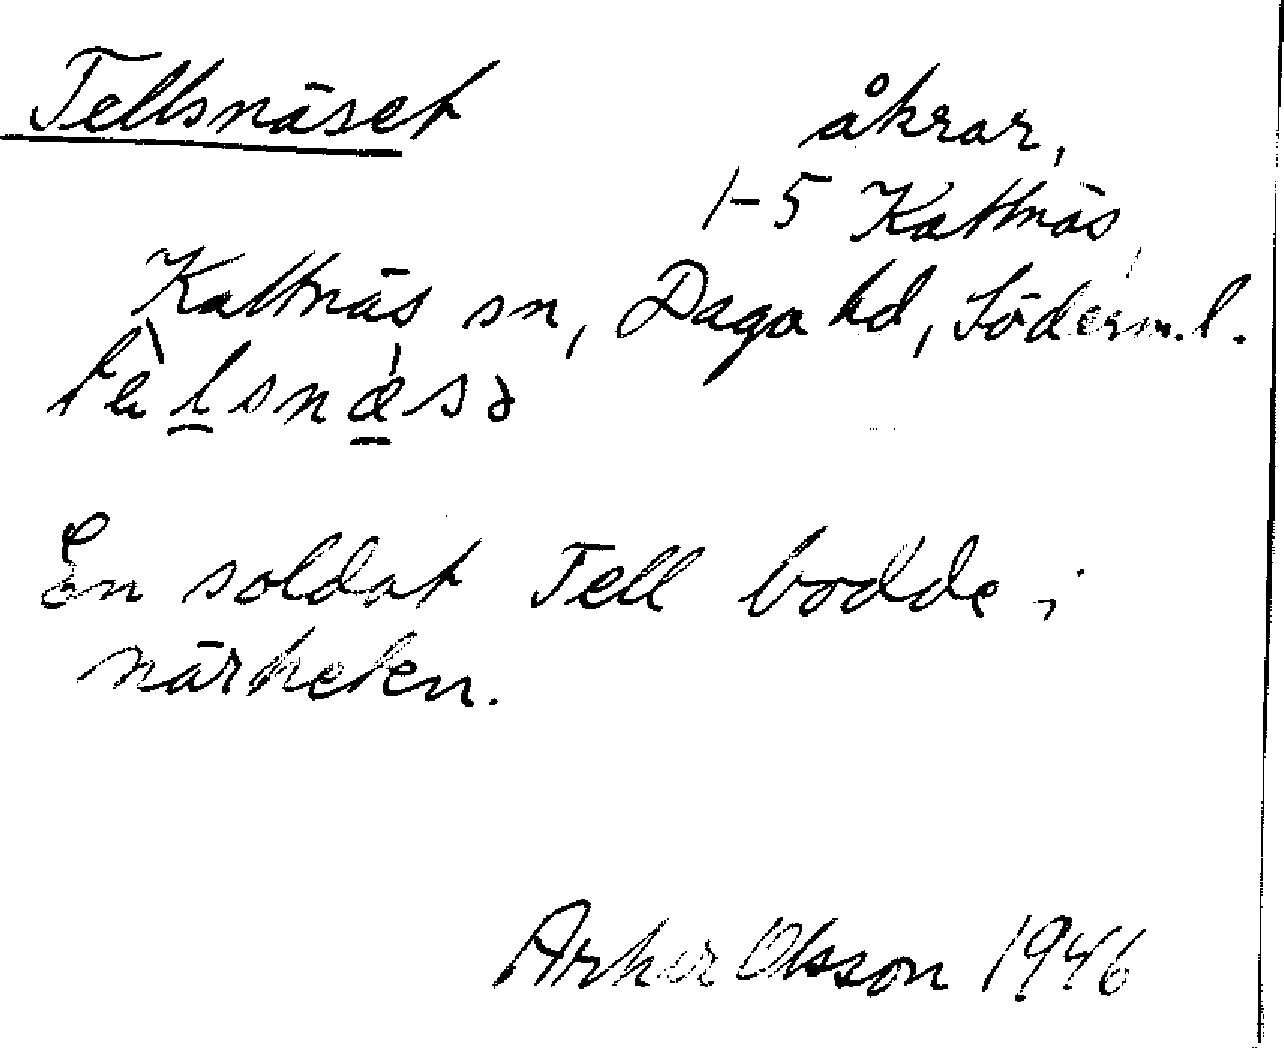 Tellsnäset
åkrar,
1-5 Kattnäs,
Kattnäs sn, Daga hd, Söderm.l.
En soldat Tell bodde i
närheten.
Olsson 1946